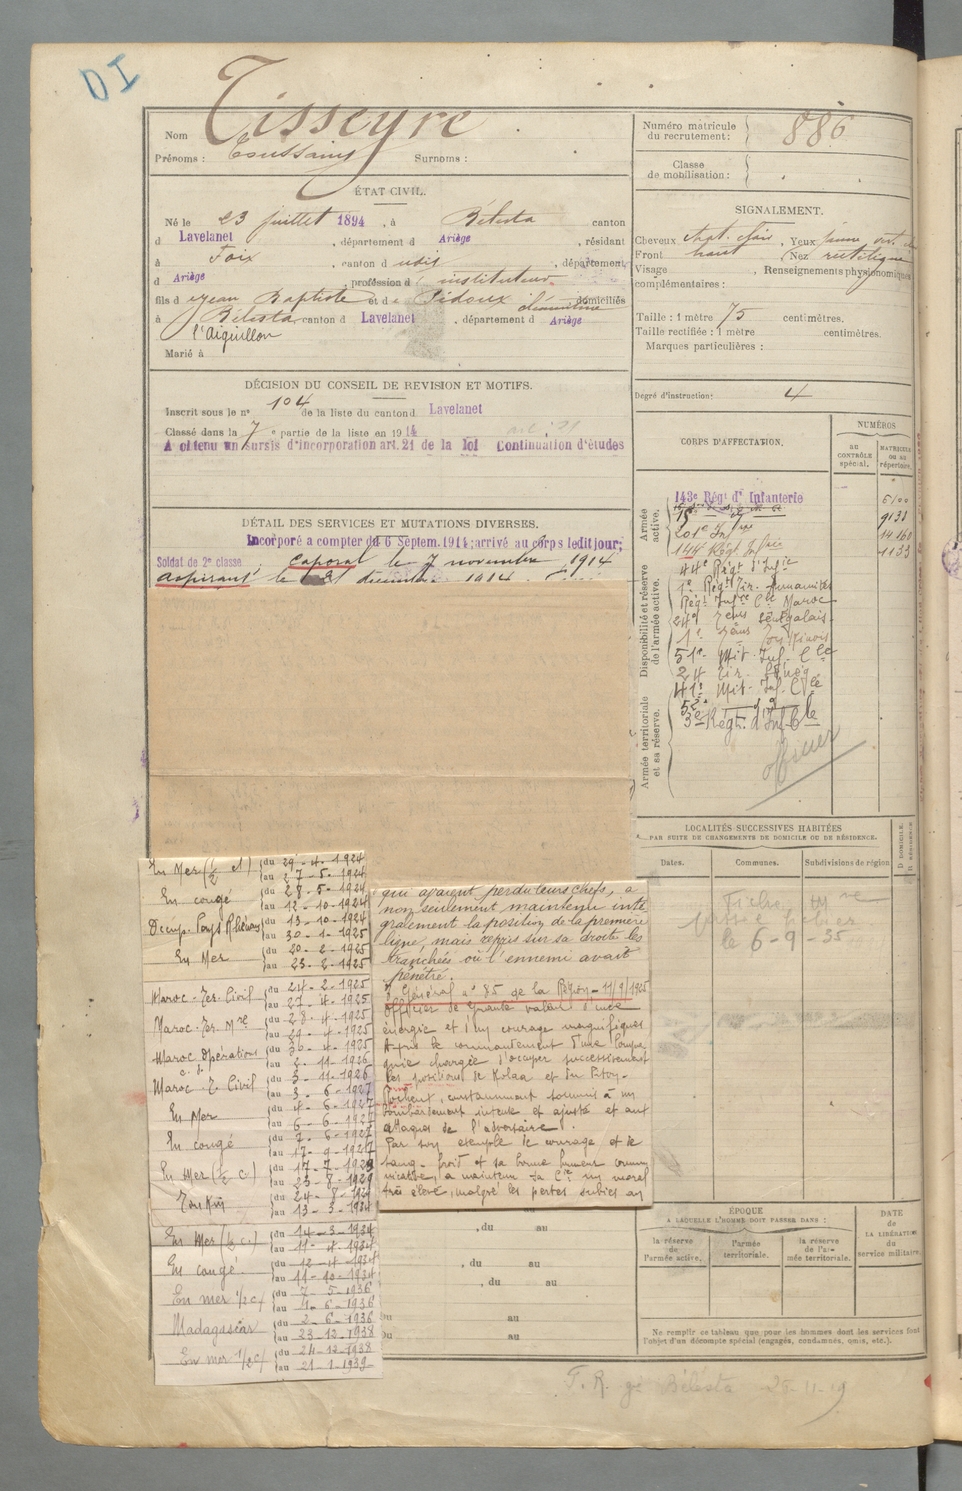 DI
Nom Tisseyre
Prénoms : Toussaint Surnoms :
ÉTAT CIVIL.
Né le 23 juillet 1894, à Bélesta canton
d Lavelanet, département d Ariège, résidant
à Foix, canton d udis, département
d Ariège, profession d instituteur
fils d Jean Baptiste et de Pidoux Clémentine domiciliés
à Bélesta, canton d Lavelanet, département d Ariège
l'Aiguillon
Marié à
DÉCISION DU CONSEIL DE REVISION ET MOTIFS.
Inscrit sous le n° 104 de la liste du canton d Lavelanet
Classé dans la 7e partie de la liste en 1914 art. 21
A obtenu un sursis d'incorporation art. 21 de la loi Continuation d'études
DÉTAIL DES SERVICES ET MUTATIONS DIVERSES.
Incorporé a compter du 6 Septem. 1914; arrivé au corps ledit jour;
Soldat de 2e classe, caporal le 7 novembre 1914
aspirant le décembre 1914
En Mer (½ c) du 29-4-1924
au 27-5-1924
En congé du 28-5-1924
au 12-10-1924
Occup. Pays Rhénans du 13-10-1924
au 30-1-1925
En Mer du 20-2-1925
au 23-2-1925
Maroc. Ter. Civil du 24-2-1925
au 27-4-1925
Maroc. Ter. Mre du 28-4-1925
au 29-4-1925
Maroc Opérations du 30-4-1925
au 2-11-1926
Maroc. T. Civil du 3-11-1926
au 3-6-1927
En Mer du 4-6-1927
au 6-6-1927
En congé du 7-6-1927
au 17-9-1927
En Mer (½ c.) du 17-7-1929
au 23-8-1929
Tonkin du 24-8-1929
au 13-3-1934
En Mer (½ c.) du 14-3-1934
au 11-4-1934
En congé du 12-4-1934
au 11-10-1934
En mer ½ c/ du 7-5-1936
au 1-6-1936
Madagascar du 2-6-1936
au 23-12-1938
En mer ½ c/ du 24-12-1938
au 21-1-1939
qui avaient perdu leurs chefs, a
non seulement maintenu inté
gralement la position de la première
ligne, mais repris sur sa droite les
tranchées où l'ennemi avait
pénétré.
Général n° 85 de la Région - 11/9/1925
Officier de grande valeur d'une
énergie et d'un courage magnifiques
A pris le commandement d'une Compa
gnie chargée d'occuper successivement
les positions de Kolaa et du Piton-
Rocheux, constamment soumis à un
bombardement intense et ajusté et aux
attaques de l'adversaire.
Par son exemple de courage et de
sang-froid et sa bonne humeur commu
nicative, a maintenu sa Cie un moral
très élevé, malgré les pertes subies au
, du au
, du au
, du au
Du au
Du au
Numéro matricule
du recrutement : 886
Classe
de mobilisation :
SIGNALEMENT.
Cheveux chat. clair, Yeux jaune vert
Front haut Nez rectiligne
Visage, Renseignements physionomiques
complémentaires :
Taille : 1 mètre 75 centimètres.
Taille rectifiée : 1 mètre centimètres.
Marques particulières :
Degré d'instruction: 4
CORPS D'AFFECTATION.
NUMÉROS
AU CONTRÔLE spécial.
MATRICULE OU AU répertoire.
Armée active.
143e Régt d'Infanterie 5100
15e 9133
201e Infrie 14160
144e Régt Infie 1133
Disponibilité et réserve de l'armée active.
44e Régt d'Infie
Régt Infie Cle Maroc
24e Sénégalais
51e Mit. Inf. Cle
24 Tir. Sénég
Armée territoriale et sa réserve.
41e Mit. Inf. Cle
3e Régt. d'Inf. Cle
officier
LOCALITÉS SUCCESSIVES HABITÉES
PAR SUITE DE CHANGEMENTS DE DOMICILE OU DE RÉSIDENCE.
Dates.
Communes.
Subdivisions de région
D DOMICILE.
R RÉSIDENCE
le 6-9-35
ÉPOQUE
A LAQUELLE L'HOMME DOIT PASSER DANS :
la réserve de l'armée active.
l'armée territoriale.
la réserve de l'armée territoriale.
DATE de LA LIBÉRATION du service militaire.
Ne remplir ce tableau que pour les hommes dont les services font
l'objet d'un décompte spécial (engagés, condamnés, omis, etc.).
F. R. ge Bélesta 29-11-19